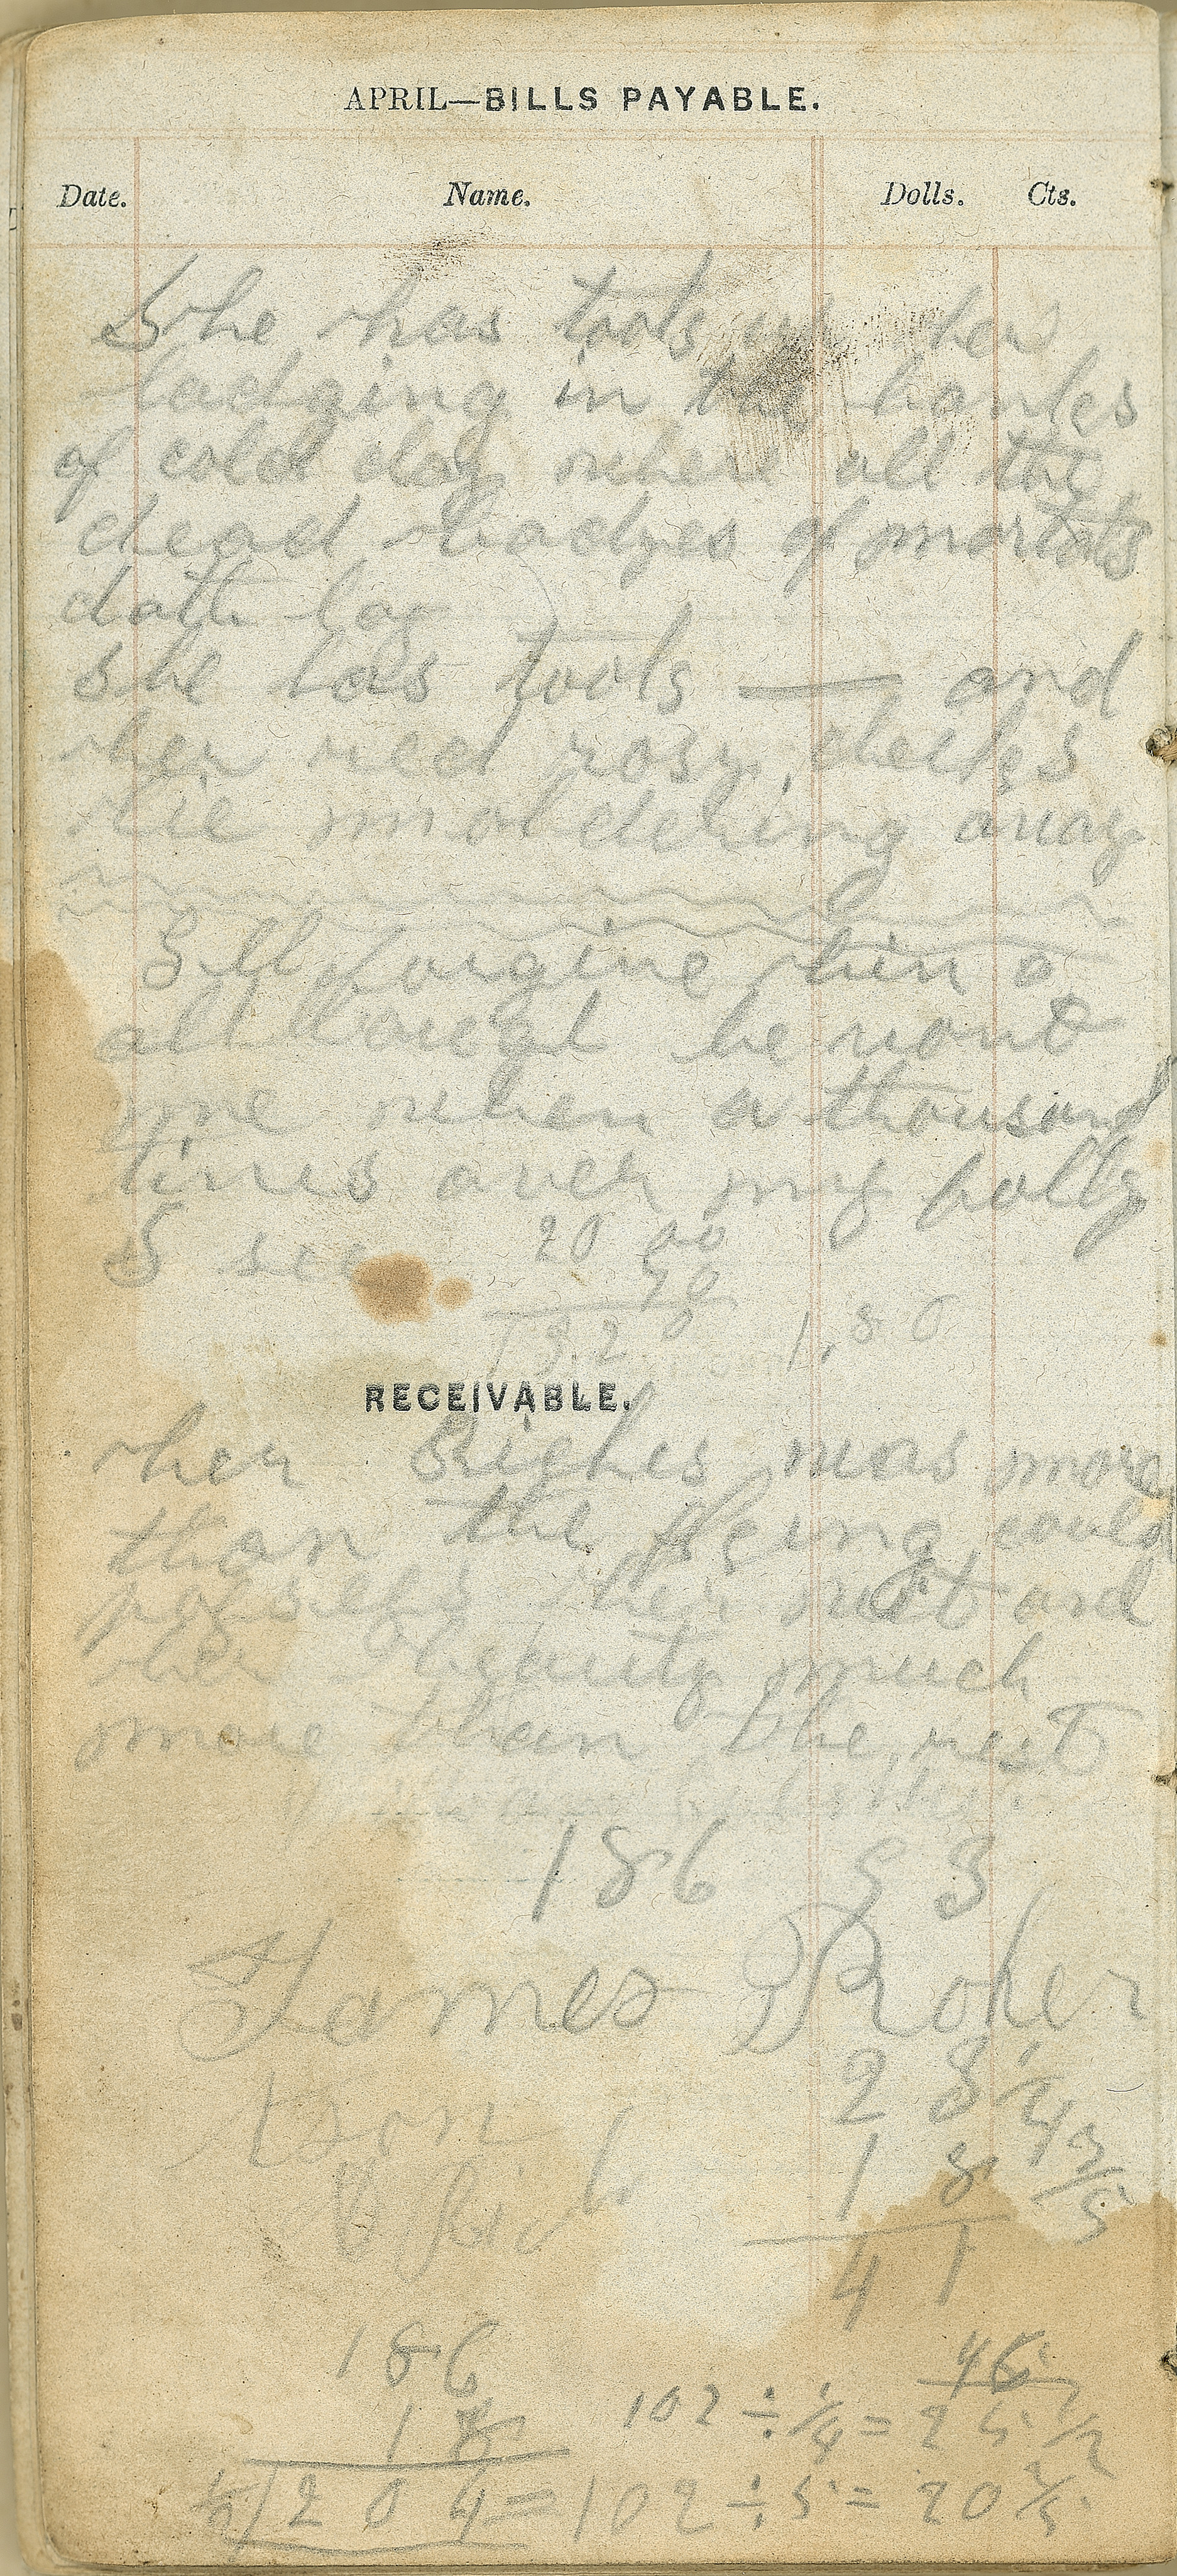 APRIL—BILLS PAYABLE.
Date. Name. Dolls. Cts.
She has took up her
ladging in the banks
of cold clay where all the
dead bodyes of mortals
doth lay
she has took — and
her red rosy cheeks
lie moldering away
I'll forgive him
all though he
me when a thousand
times over my polly
I see
20 00
50
1,80
RECEIVABLE.
her Righes was more
than the King could
posses her and
her beauty much
more than the rest
186 53
James Roher
28 1/4
18 3/5
41
186
18
204 = 102 ÷ 5 = 20 2/5
102 ÷ 1/4 = 25 1/2